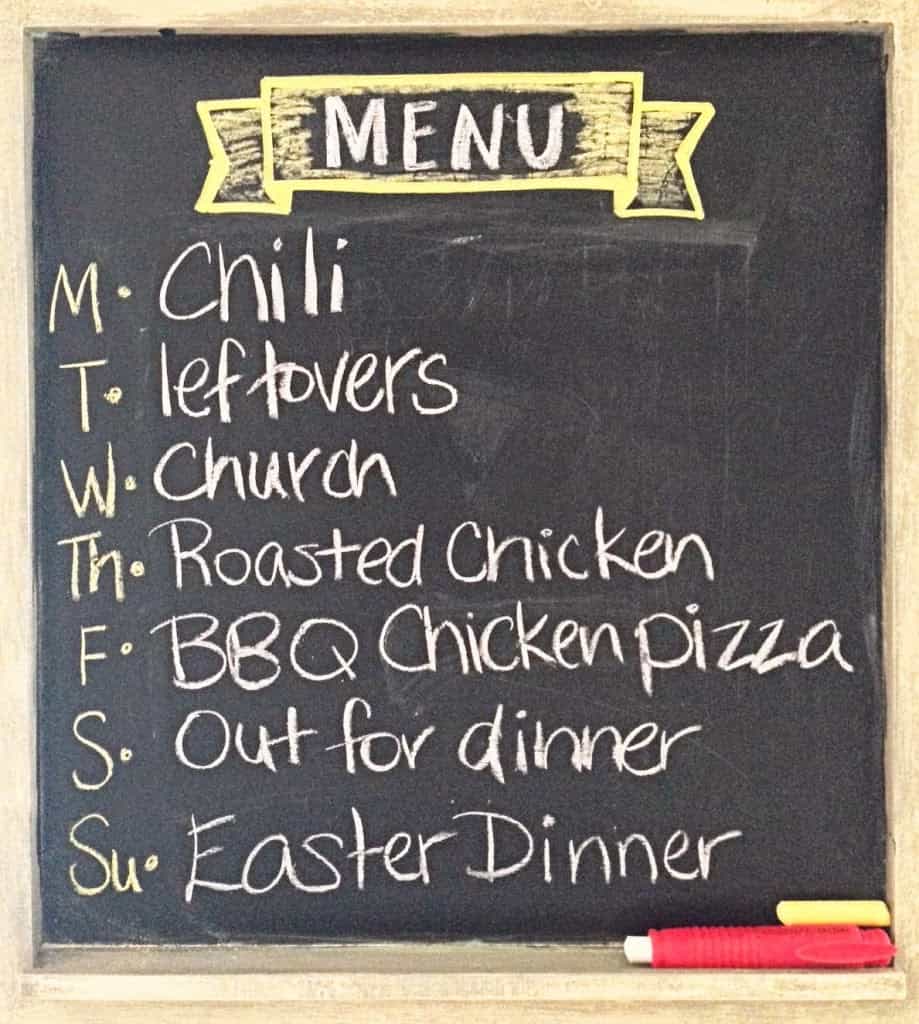 MENU
M. Chili
T. leftovers
W. Church
Th. Roasted Chicken
F. BBQ Chicken pizza
S. Out for dinner
Su. Easter Dinner